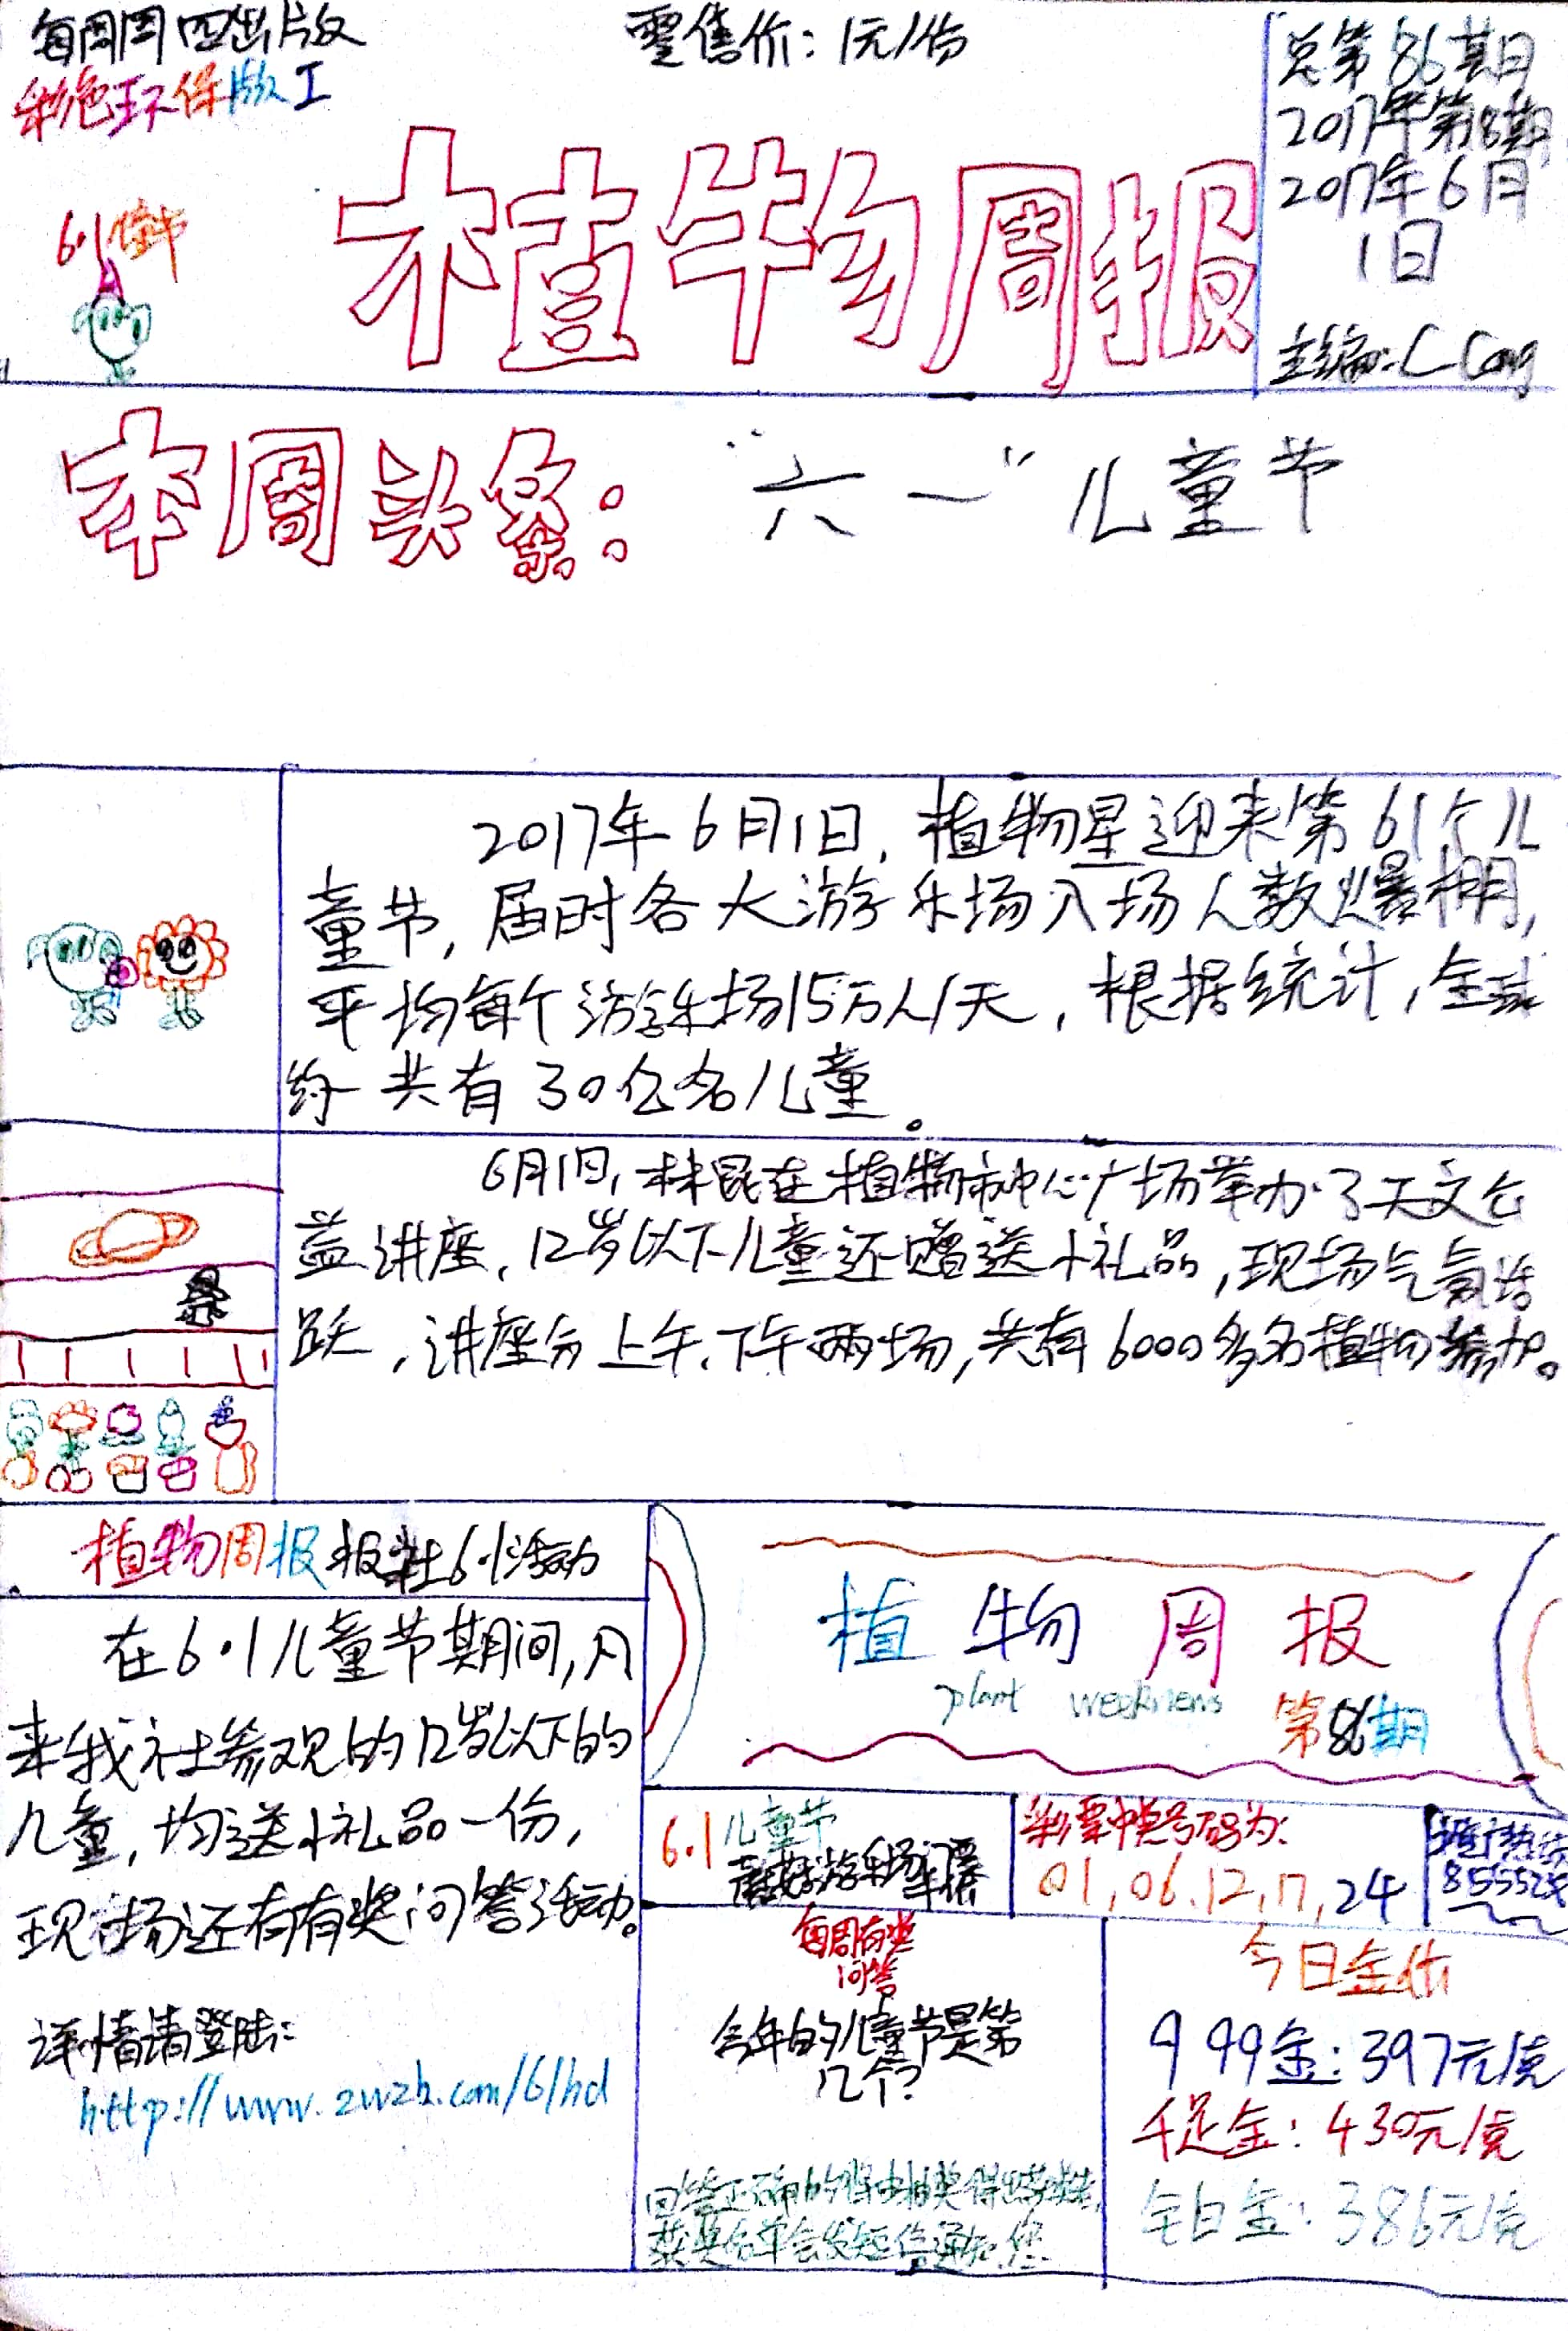 每周周四出版
零售价：1元/份
彩色环保版I
总第86期
2017年第18期
2017年6月
1日
6.1儿童节
植物周报
主编：C Cong
本周头条：
“六一”儿童节
2017年6月1日，植物星迎来第61个儿
童节，届时各大游乐场入场人数爆棚，
平均每个游乐场15万人/天，根据统计，全球
约共有30亿名儿童。
6月1日，林昆在植物市中心广场举办了天文公
益讲座，12岁以下儿童还赠送小礼品，现场气氛活
跃，讲座分上午、下午两场，共有6000多名植物参加。
植物周报报社6.1活动
在6·1儿童节期间，凡
来我社参观的12岁以下的
儿童，均送小礼品一份，
现场还有有奖问答活动。
详情请登陆：
http://www.zwzb.com/61hd
植物周报
plant weeknews
第86期
6.1儿童节
游乐场门票
半价
彩票中奖号码为：
01,06.12,17,24
每周有奖
问答
今年的儿童节是第
几个？
回答正确的将由抽奖得出获奖者，
获奖名单会发短信通知您
今日金价
999金：397元/克
千足金：430元/克
铂白金：386元/克